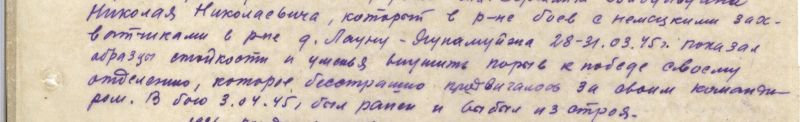 Николая Николаевича, который в р-не боев с немецкими зах-
ватчиками в р-не д. Лауну - Ягунамуйжа 28-31.03.45г. показал
образцы стойкости и уменья внушить порыв к победе своему
отделению, которое бесстрашно продвигалось за своим команди-
ром. В бою 3.04.45г был ранен и выбыл из строя.